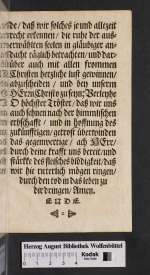 wir solches je und allezeit
recht erkennen / die ruhe der aus-
erwöhlten seelen in gläubiger an-
dacht täglich betrachten / und dar-
über auch mit allen frommen
Christen hertzliche lust gewinnen /
abzuscheiden / und bey unserm
HErrn Christo zu seyn; Verleyhe
O höchster Tröster / daß wir uns
auch sehnen nach der himmlischen
erbschafft / und in hoffnung des
zukünfftigen / getrost überwinden
das gegenwertige / ach HErr /
durch deine krafft uns bereit und
stärcke des fleisches blödigkeit / daß
wir hie ritterlich mögen ringen /
durch den tod in das leben zu
dir dringen / Amen.
ENDE.
Herzog August Bibliothek Wolfenbüttel
Kodak